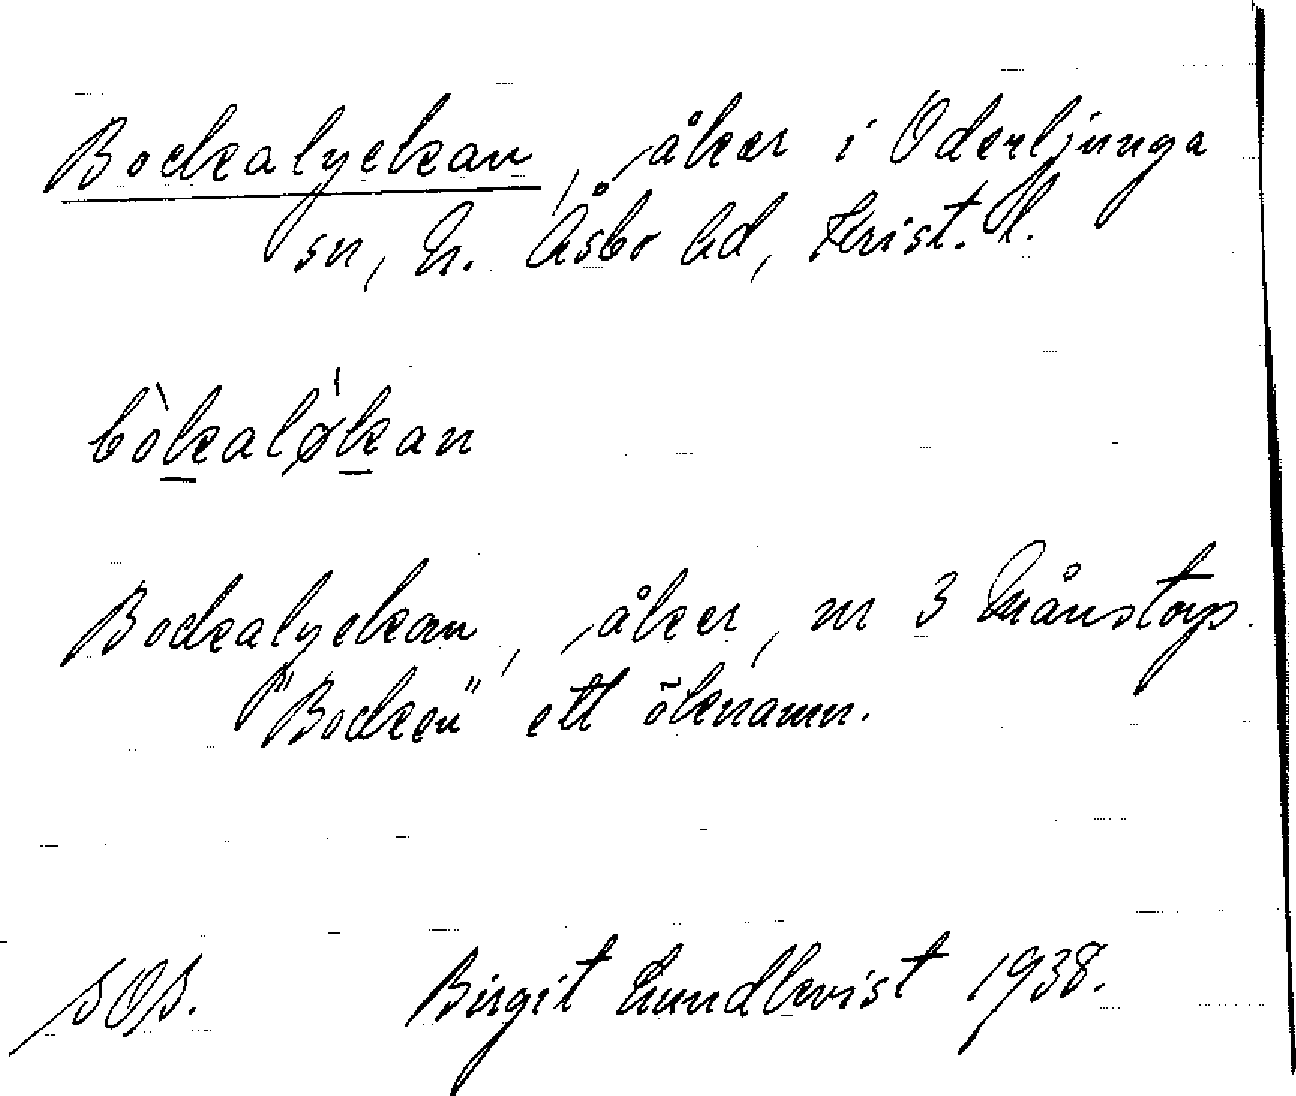 Bockalyckan, åker i Oderljunga
sn, N. Åsbo hd, Krist. l.
bòkaløkan
Bockalyckan, åker, nr 3 Månstorp.
"Bocken" ett öknamn.
SOS. Birgit Lundkvist 1938.